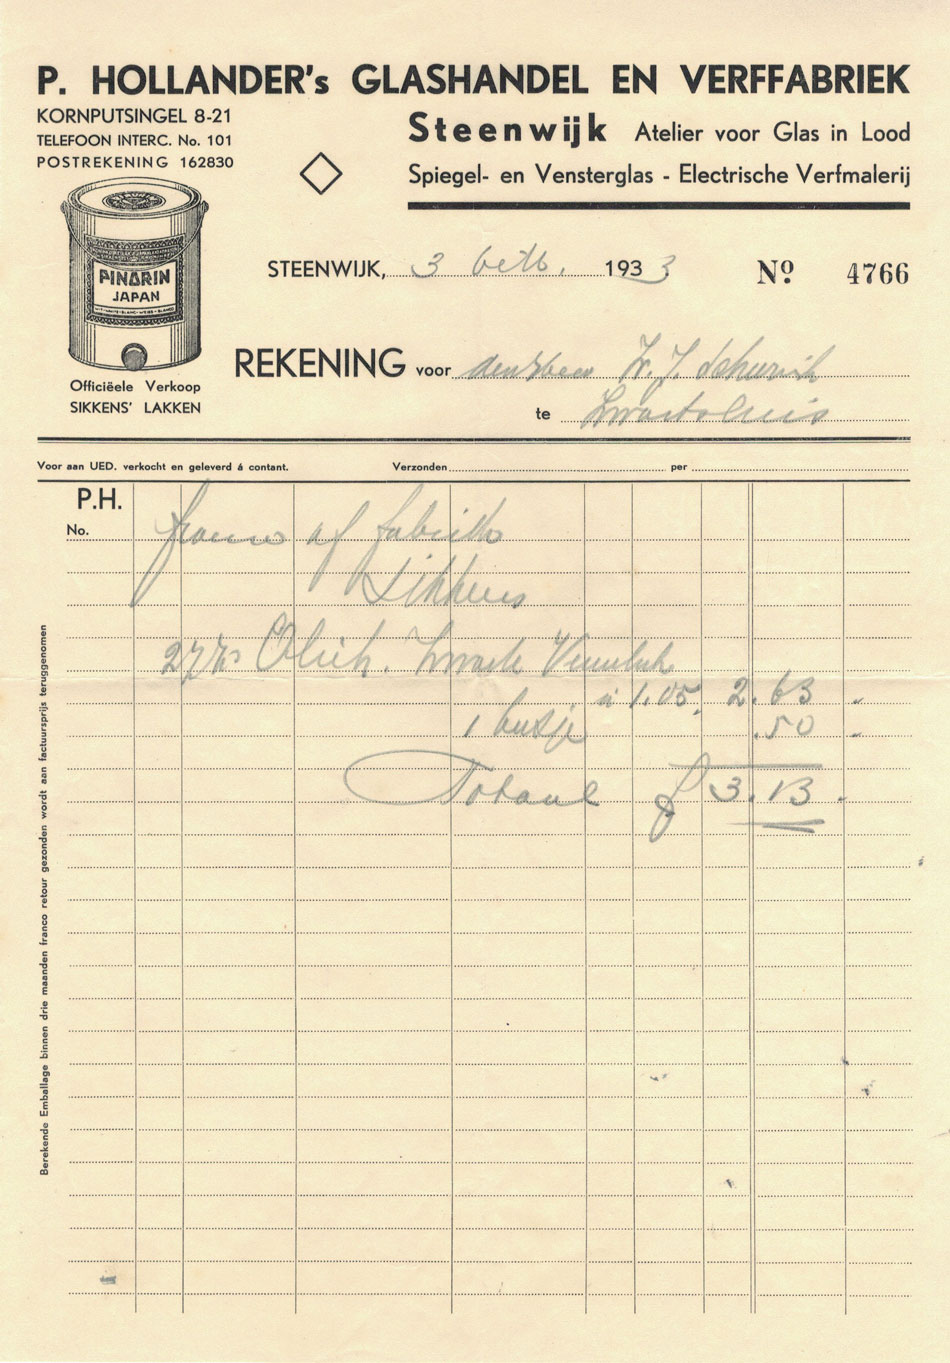 P. HOLLANDER's GLASHANDEL EN VERFFABRIEK
KORNPUTSINGEL 8-21
TELEFOON INTERC. No. 101
POSTREKENING 162830
Steenwijk Atelier voor Glas in Lood
Spiegel- en Vensterglas - Electrische Verfmalerij
PINDRIN
JAPAN
Officiëele Verkoop
SIKKENS' LAKKEN
STEENWIJK, 3 Octb. 1933
Nº 4766
REKENING voor den heer J. Schurink
te Zwartsluis
Voor aan UED. verkocht en geleverd á contant. Verzonden per
P.H.
No.
franco af fabriek
Sikkens
Zwarte
à 1.05. 2.63
1 busje .50
Totaal f 3.13
Berekende Emballage binnen drie maanden franco retour gezonden wordt aan factuursprijs teruggenomen